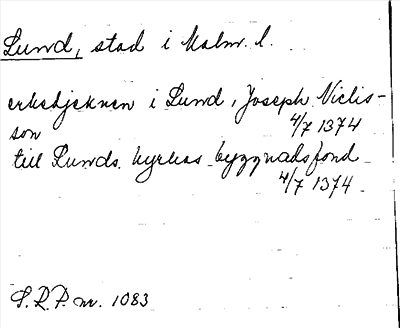 Lund, stad i Malm. l.
erkedjeknen i Lund, Joseph Niclis-
4/7 1374
son
till Lunds kyrkas byggnadsfond
4/7 1374
S.R.P. nr. 1083